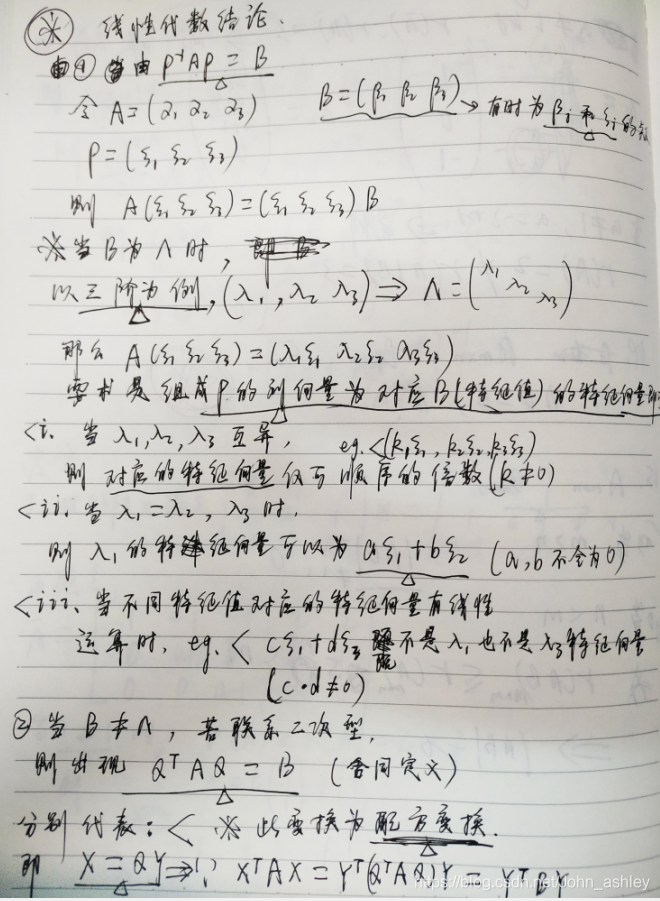 ※ 线性代数结论.
① 由 P⁻¹AP = B
令 A=(α₁ α₂ α₃) B=(β₁ β₂ β₃) → 有时为 βⱼ 和 ξⱼ 的
P=(ξ₁ ξ₂ ξ₃)
则 A(ξ₁ ξ₂ ξ₃)=(ξ₁ ξ₂ ξ₃)B
※当B为Λ时,
以三阶为例, (λ₁, λ₂ λ₃) ⇒ Λ=(λ₁ λ₂ λ₃)
那么 A(ξ₁ ξ₂ ξ₃)=(λ₁ξ₁ λ₂ξ₂ λ₃ξ₃)
要求是组成P的列向量为对应B(特征值)的特征向量即
<i. 当λ₁,λ₂,λ₃互异, eg.<(k₁ξ₁, k₂ξ₂, k₃ξ₃)
则 对应的特征向量仅可顺序的倍数(k≠0)
<ii. 当λ₁=λ₂, λ₃时.
则 λ₁的特征向量可以为 aξ₁+bξ₂ (a,b不全为0)
<iii. 当不同特征值对应的特征向量有线性
运算时, eg.< cξ₁+dξ₃ 不是λ₁也不是λ₃特征向量
(c·d≠0)
② 当B≠Λ, 若联系二次型,
则出现 QᵀAQ = B (合同定义)
分别代表:< ※ 此变换为配方变换.
即 X=QY ⇒ ∵ XᵀAX = Yᵀ(QᵀAQ)Y = YᵀBY
https://blog.csdn.net/john_ashley